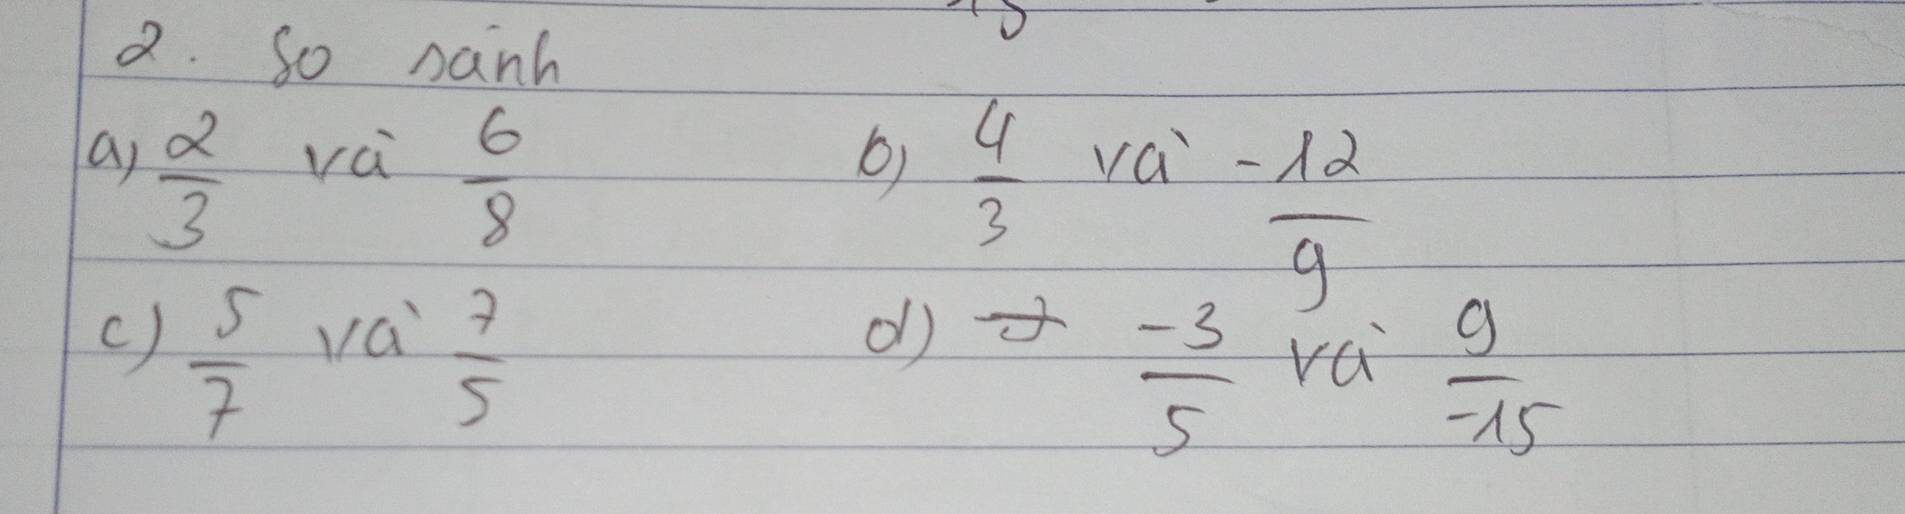 2. So sánh
a) 2/3 và 6/8 b) 4/3 và -12/9
c) 5/7 và 7/5 d) -3/5 và 9/-15